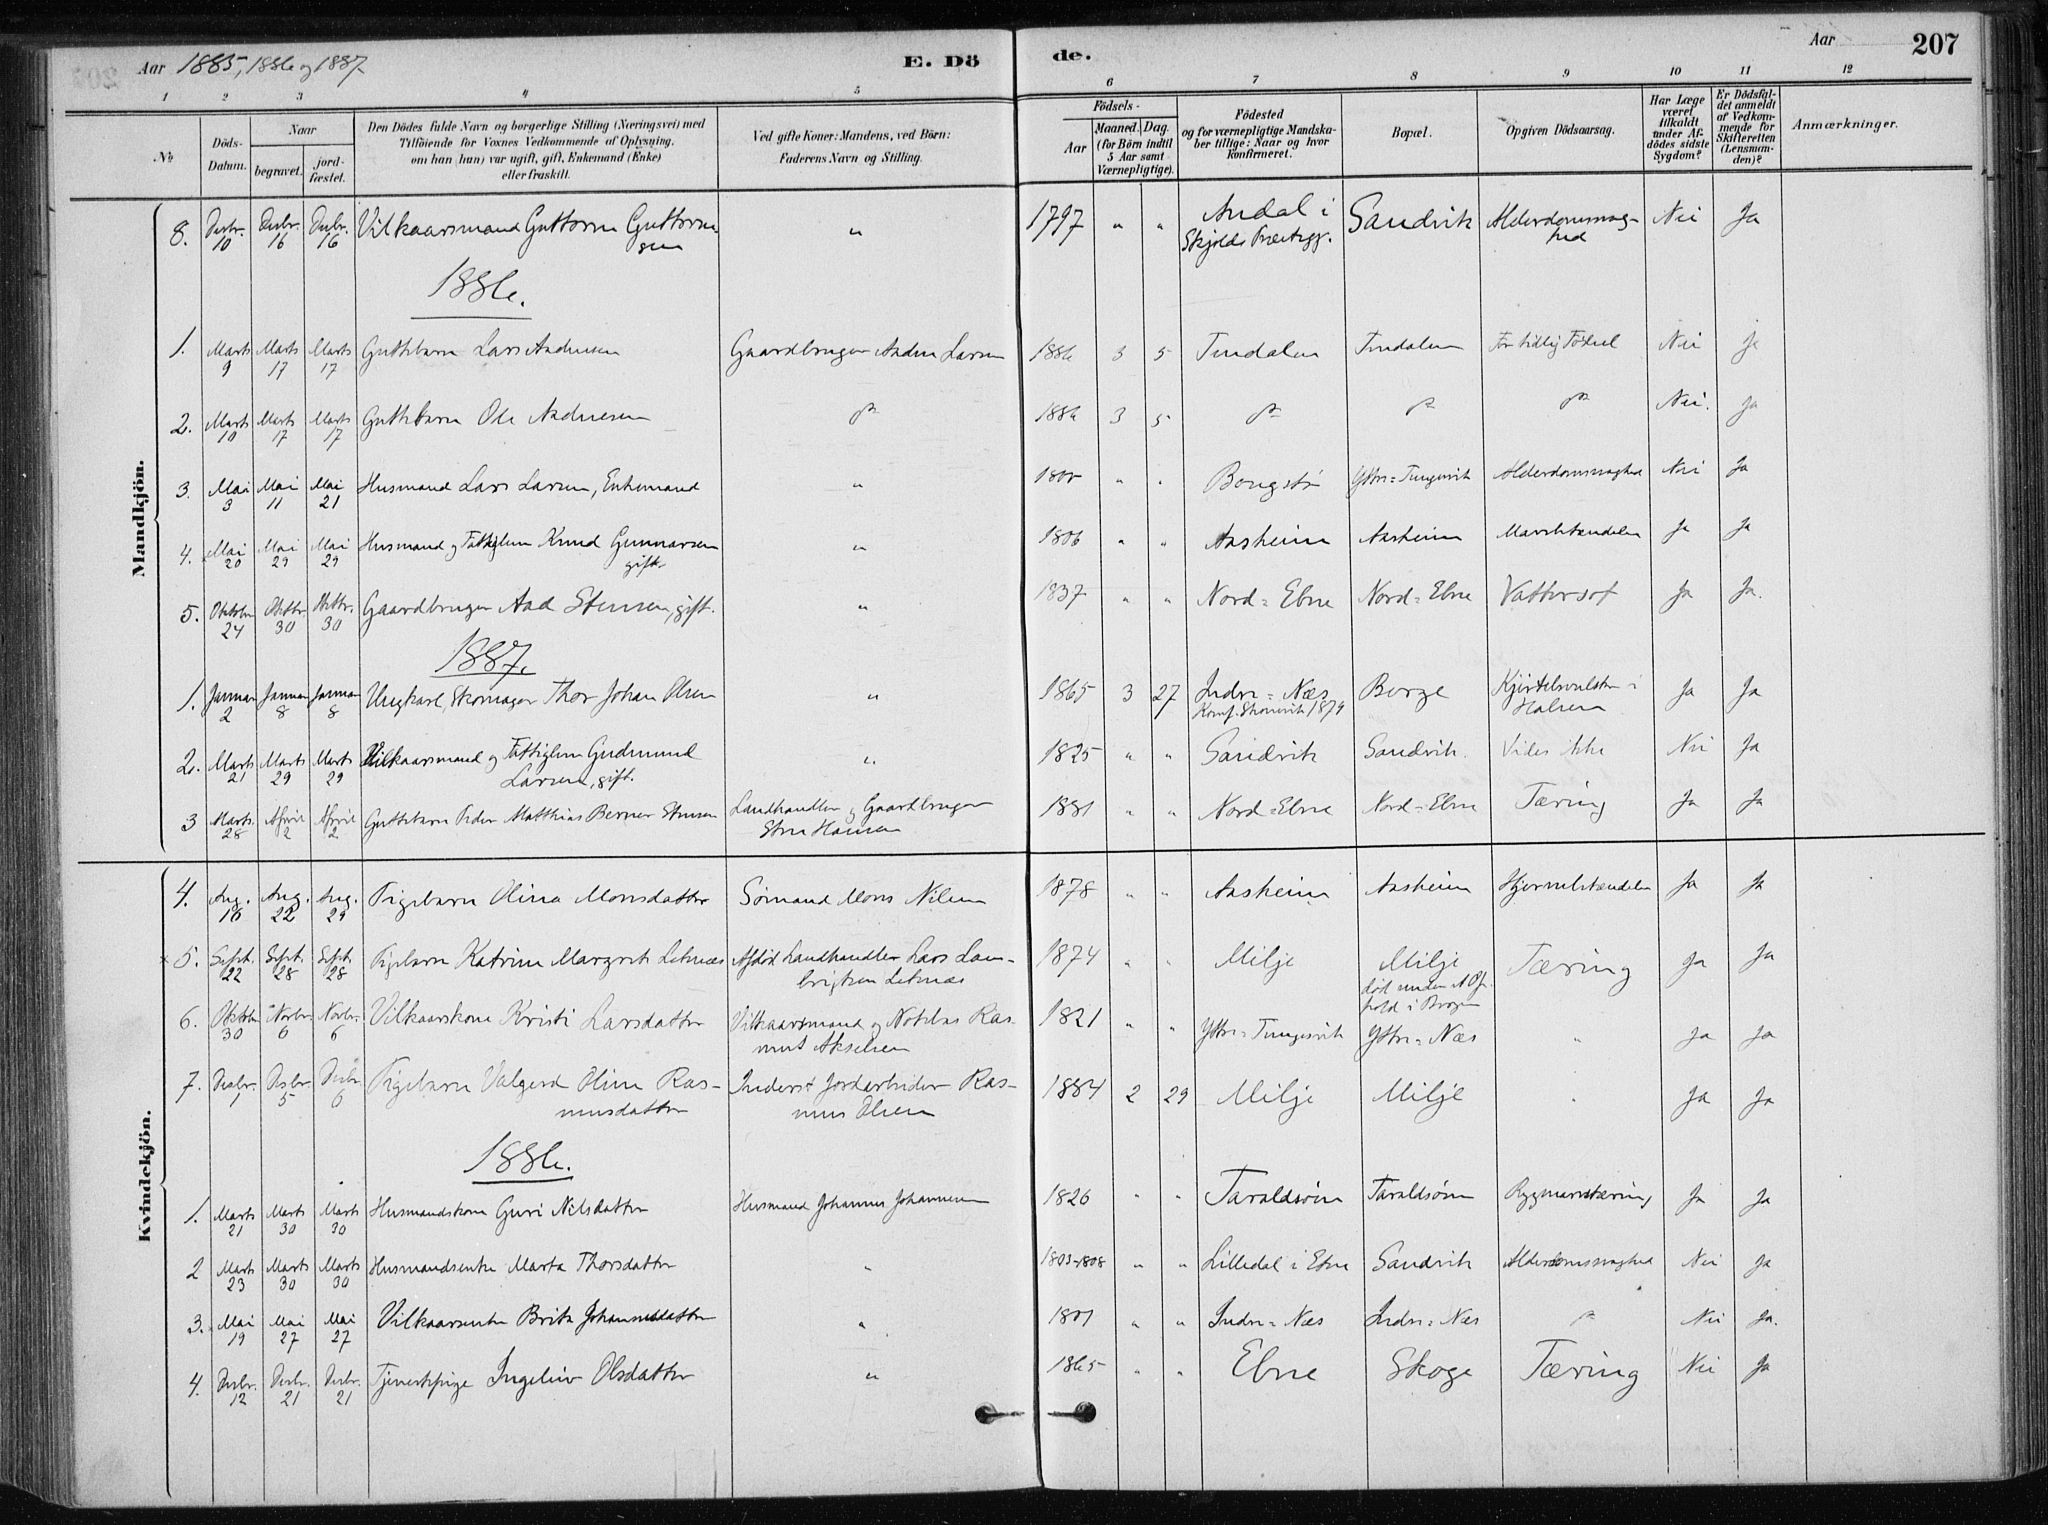 Aar 1885, 1886 og 1887.
E. Dö
de.
Aar
207
1 2 3 4 5 6 7 8 9 10 11 12
No
Döds-Datum.
Naar
begravet.
jord-fæstet.
Den Dödes fulde Navn og borgerlige Stilling (Næringsvei) med
Tilföiende for Voxnes Vedkommende af Oplysning,
om han (hun) var ugift, gift, Enkemand (Enke)
eller fraskilt.
Ved gifte Koner: Mandens, ved Börn:
Faderens Navn og Stilling.
Födsels-
Aar
Maaned. Dag.
(for Börn indtil
5 Aar samt
Værnepligtige).
Födested
og for værnepligtige Mandska-
ber tillige: Naar og hvor
konfirmeret.
Bopæl.
Opgiven Dödsaarsag.
Har Læge
været
tilkaldt
under Af-
dödes sidste
Sygdom?
Er Dödsfal-
det anmeldt
af Vedkom-
mende for
Skifteretten
(Lensman-
den)?
Anmærkninger.
Mandkjön.
8. Desbr. 10 Desbr. 16 Desbr. 16 Vilkaarsmand Guttorm Guttorm- " 1797 " " Andal i Sandvik Alderdomssvag- Nei Ja
sen Skjolds Præstegj. hed
1886.
1. Marts 9 Marts 17 Marts 17 Guttebarn Lars Andersen Gaardbruger Anders Larsen 1886 3 5 Tindalen Tindalen For tidlig Födsel Nei ja
2. Marts 10 Marts 17 Marts 17 Guttebarn Ole Andersen do 1886 3 5 do do do Nei. ja
3. Mai 3 Mai 11 Mai 21 Husmand Lars Larsen, Enkemand " " " Ytre=Tungesvik Alderdomssvaghed Nei Ja
4. Mai 20 Mai 29 Mai 29 Husmand og Fattiglem Knud Gunnarsen " 1806 " " Aasheim Aasheim Ja Ja
gift
5. Oktober 24 Oktbr. 30 Oktbr. 30 Gaardbruger Aad Stensen, gift. " 1837 " " Nord=Ebne Nord=Ebne Vattersot Ja Ja.
1887.
1. Januar 2 Januar 8 Januar 8 Ungkarl, Skomager Thor Johan Olsen " 1865 3 27 Indre=Næs Borge Kjertelsvulster i Ja Ja
Konf. Skonevik 1879 Halsen
2. Marts 21 Marts 29 Marts 29 Vilkaarsmand og Fattiglem Gudmund " 1825 " " Sandvik Sandvik. Vides ikke Nei Ja
Larsen, gift.
3 Marts 28 April 2 April 2 Guttebarn Peder Matthias Berner Stensen Landhandler og Gaardbruger 1881 " " Nord=Ebne Nord=Ebne Tæring Ja Ja
Sten Hansen
Kvindekjön.
4. Aug. 16 Aug. 22 Aug. 29 Pigebarn Olina Monsdatter Sömand Mons Nilsen 1878 " " Aasheim Aasheim Hjernebetændelse Ja Ja
5. Sept. 22 Sept. 28 Sept. 28 Pigebarn Katrine Margret Letnæs Afdöd Landhandler Lars Lam- 1874 " " Milje Milje Tæring Ja Ja
brigtsen Letnæs död under et Op-
hold i Bergen
6. Oktober 30 Novbr. 6 Novbr. 6 Vilkaarskone Kristi Larsdatter Vilkaarsmand og Ras- 1821 " " Ytre=Tungesvik Ytre=Næs " Ja Ja
mus Akselsen
7. Desbr. 1 Desbr. 5 Desbr. 6 Pigebarn Valgerd Oline Ras- Inderst Jordarbeider Ras- 1884 2 29 Milje Milje " Ja Ja
musdatter mus Olsen
1886.
1. Marts 21 Marts 30 Marts 30 Husmandskone Guri Nilsdatter Husmand Johannes Johannesen 1826 " " Taraldsöen Taraldsöen Rygmarvstæring Ja Ja
2 Marts 23 Marts 30 Marts 30 Husmandsenke Marta Thorsdatter " 1803-1808 " " Lilledal i Etne Sandvik Alderdomssvaghed Nei Ja
3. Mai 19 Mai 27 Mai 27 Vilkaarsenke Brita Johannesdatter " 1801 " " Indre=Næs Indre=Næs do Nei Ja.
4. Desbr. 12 Desbr. 21 Desbr. 21 Tjenestepige Ingeleiv Olsdatter " 1865 " " Ebne Skoge Tæring Nei Ja